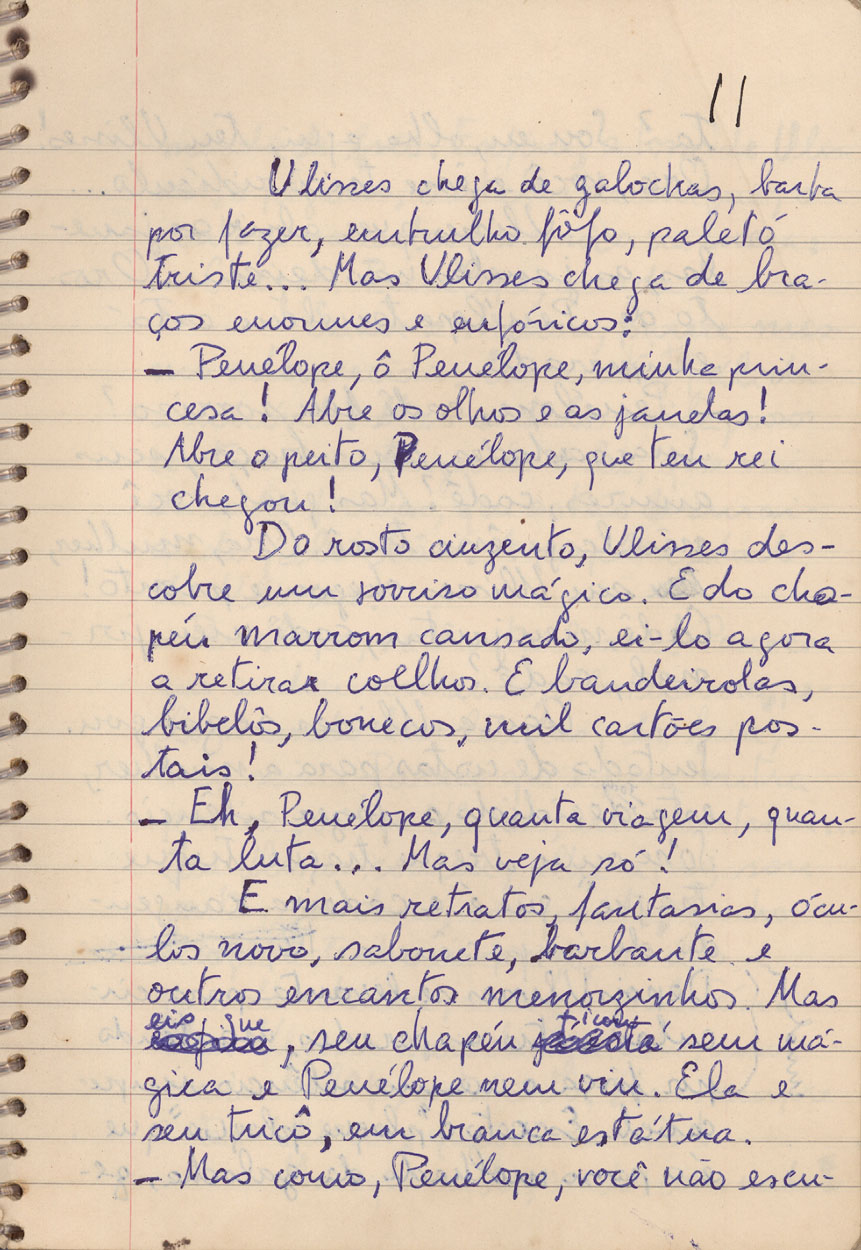 11
Ulisses chega de galochas, barba
por fazer, embrulho fôfo, paletó
triste... Mas Ulisses chega de bra-
ços enormes e eufóricos:
— Penélope, ô Penélope, minha prin-
cesa! Abre os olhos e as janelas!
Abre o peito, Penélope, que teu rei
chegou!
Do rosto cinzento, Ulisses des-
cobre um sorriso mágico. E do cha-
péu marrom cansado, ei-lo agora
a retirar coelhos. E bandeirolas,
bibelôs, bonecos, mil cartões pos-
tais!
— Eh, Penélope, quanta viagem, quan-
ta luta... Mas veja só!
E mais retratos, fantasias, ócu-
los novo, sabonete, barbante e
outros encantos menorzinhos. Mas
eis que, seu chapéu ficou sem má-
gica e Penélope nem viu. Ela e
seu tricô, em branca estátua.
— Mas como, Penélope, você não escu-